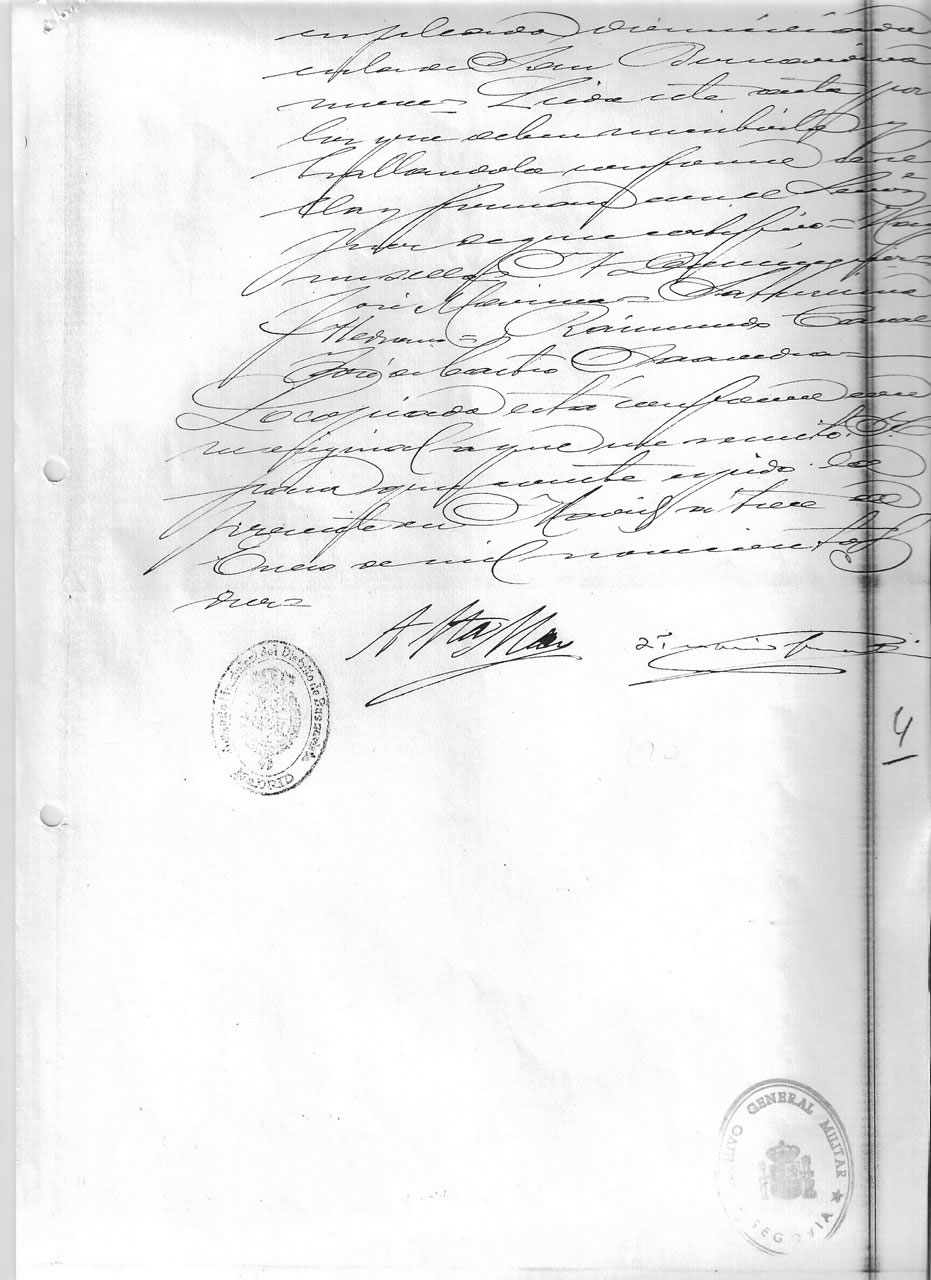 empleado domiciliado
calle de San Bernardino
nueve = Leida este acta por
las que deben suscribirla y
hallandola conforme se se
lla y firman con el Señor
Juez de que certifico = Hay
un sello = A Domínguez =
José Martinez = Saturnino
Medrano = Raimundo
Jorge Castro Saavedra =
Lo copiado está conforme con
su original á que me remito. Y
para que conste expido la
presente en Madrid á trece de
Enero de mil novecientos
diez =
Juzgado Municipal del Distrito de Buenavista
MADRID
4
ARCHIVO GENERAL MILITAR
SEGOVIA